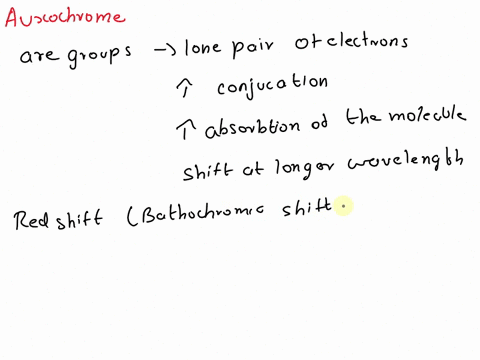 Auxochrome
are groups → lone pair of electrons
↑ conjucation
↑ absorbtion od the molecule
shift at longer wavelength
Red shift (Bathochromic shift